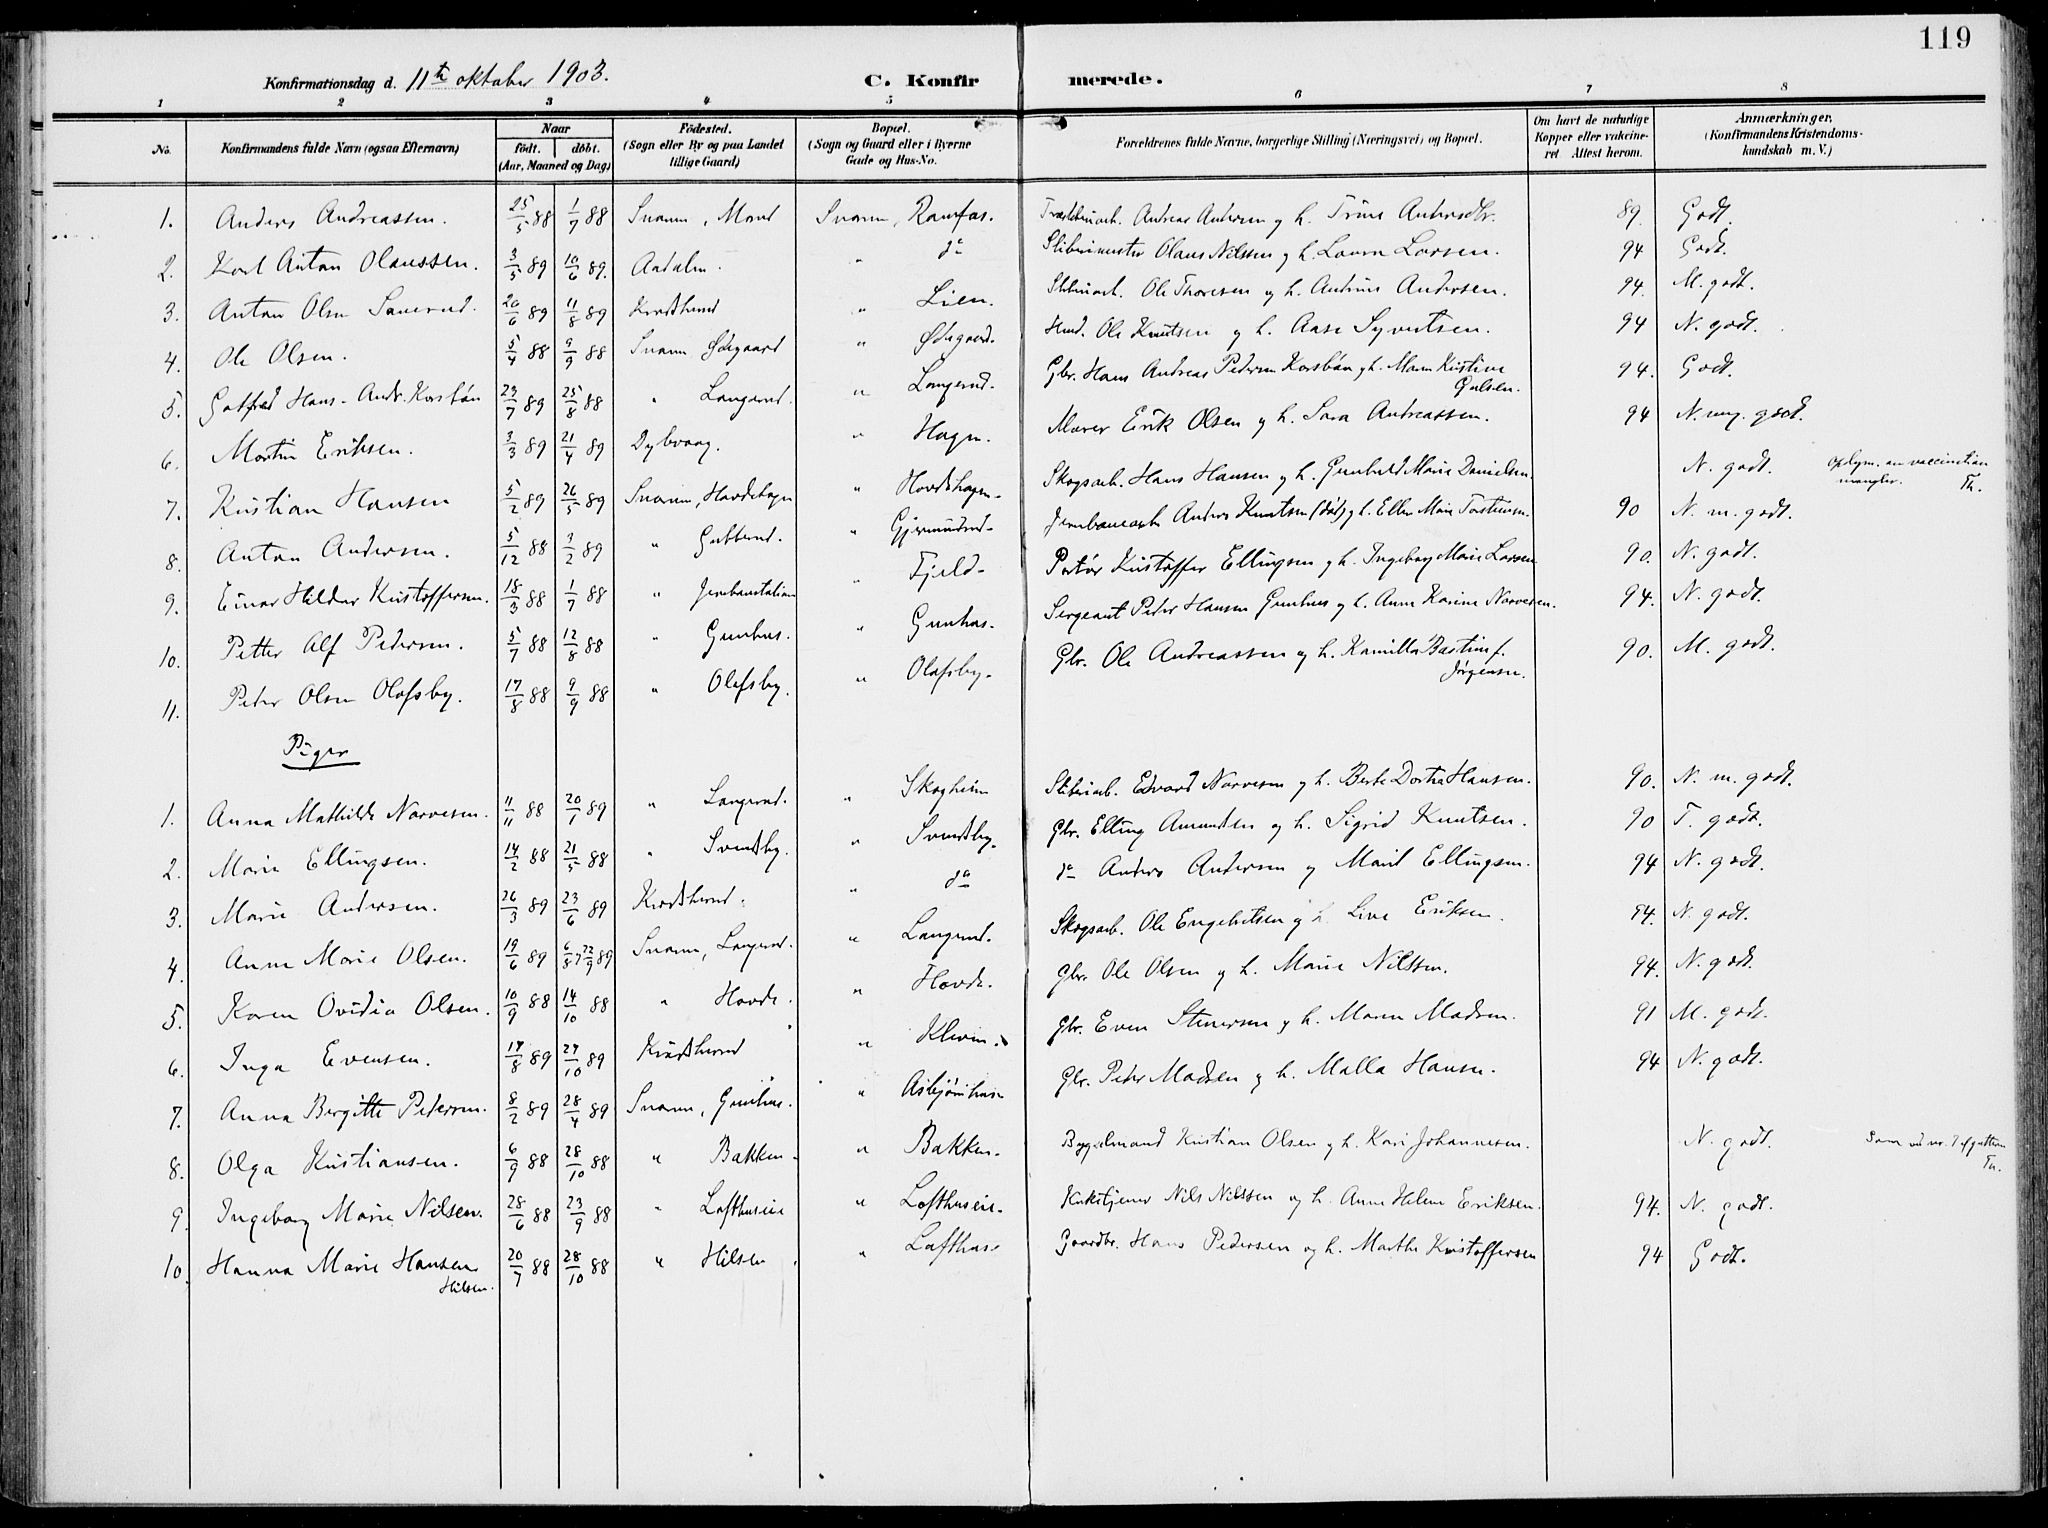 119
Konfirmationsdag d. 11te oktober 1903. C. Konfirmerede.
1 2 3 4 5 6 7 8
No. Konfirmandens fulde Navn (ogsaa Efternavn) Naar født. døbt. (Aar, Maaned og Dag) Fødested. (Sogn eller By og paa Landet tillige Gaard) Bopæl. (Sogn og Gaard eller i Byerne Gade og Hus-No. Forældrenes fulde Navne, borgerlige Stilling (Næringsvei) og Bopæl. Om havt de naturlige Kopper eller vaccineret. Attest herom. Anmærkninger, (Konfirmandens Kristendomskundskab m. V.)
1. Anders Andreassen. 25/5 88 1/7 88 Snarum, Moud Snarum, Ramfos. Andreas Andersen og h. Trine Andersdtr. 89. Godt.
2. Karl Anton Olaussen. 3/5 89 10/6 89. Aadalen. " do Slibrimester Olaus Nilssen og h. Laura Larsen. 94 Godt.
3. Anton Olsen 20/6 89 11/8 89 Krødsherred " Lien. Sliberiarb. Ole Thoresen og h. Andrine Andersen. 94. M. godt.
4 Ole Olsen. 5/4 88 9/9 88 Snarum Ødegaard " Ødegaard. Husm. Ole Knutsen og h. Aase Syvertsen. 94 N. godt.
5. Gotfred Hans-Andr. Korsbøn 23/7 89 25/8 88 " Langerud. " Langerud. Gbr. Hans Andreas Pedersen Korsbøn og h. Maren Kristine Gulsen. 94. Godt.
6. Martin Eriksen. 3/3 89 21/4 89 Dybvaag. " Hagen. Murer Erik Olsen og h. Sara Andreassen. 94 N. mg. godt.
7. Kristian Hansen 5/2 89 26/5 89 Snarum, Hovdehagen " Hovdehagen. Skogsarb. Hans Hansen og h. Gunhild Marie Danielsen. N. godt. Oplysn. om vaccination mangler. Th.
8. Anton Andersen. 5/12 88 3/2 89 " Gubberud. " Gjermundrud. Jernbanearb. Anders Knutsen (død) og h. Ellen Marie Torstensen. 90 N. m. godt.
9. Einar Hildur Kristoffersen. 18/3 88 1/7 88 " Jernbanstation " Fjeld. Portør Kristoffer Ellingsen og h. Ingeborg Marie Larsen 90. N. godt.
10. Petter Alf Pedersen. 5/7 88 12/8 88 " Grunhus. " Gunhus. Sergeant Peder Hansen Grunhus og h. Anne Karine Narvesen. 94. N. godt.
11. Peder Olsen Olafsby. 17/8 88 9/9 88 " Olafsby. " Olafsby. Gbr. Ole Andreassen og h. Kamilla Bastine f. Jørgensen. 90. M. godt.
Piger
1. Anna Mathilde Narvesen. 11/11 88 20/1 89 " Langerud. " Skogheim Sliberiarb. Edvard Narvesen og h. Berte Dortea Hansen. 90. N. m. godt.
2. Marie Ellingsen. 14/2 88 21/5 88 " Svendsby. " Svendsby. Gbr. Elling Amundsen og h. Sigrid Knutsen. 90 T. godt.
3. Marie Andersen. 26/3 89 23/6 89 Krødsherred. " do do Anders Andersen og Marit Ellingsen. 94 N. godt.
4. Anne Marie Olsen. 19/6 89 6/8 22/9 89 Snarum, Langerud. " Langerud. Skogsarb. Ole Engebretsen og h. Live Eriksen. 94. N. godt.
5. Karen Ovidia Olsen. 10/9 88 14/10 88 " Hovde. " Hovde. Gbr. Ole Olsen og h. Marie Nilssen. 94. N. godt.
6. Inga Evensen. 14/8 89 27/10 89 Krødsherred " Kleven. Gbr. Even Stenersen og h. Maren Madsen. 91 M. godt.
7. Anna Birgitte Petersen. 8/2 89 28/4 89 Snarum, Grunhus. " Asbjørnhus Gbr. Peter Madsen og h. Malla Hansen. 94 N. godt.
8. Olga Kristiansen. 6/9 88 28/10 88 " Bakken. " Bakken. Bygselmand Kristian Olsen og h. Kari Johannesen. N. godt. Som ved nr. 7 af gutterne Th.
9. Ingeborg Marie Nilsen. 28/6 88 23/9 88 " Lofthuseie " Lofthuseie. Kirketjener Nils Nilssen og h. Anne Helene Eriksen. 94. N. godt.
10. Hanna Marie Hansen Hilsen. 20/7 88 28/10 88 " Hilsen " Lofthus Gaardbr. Hans Pedersen og h. Marthe Kristoffersen 94 Godt.